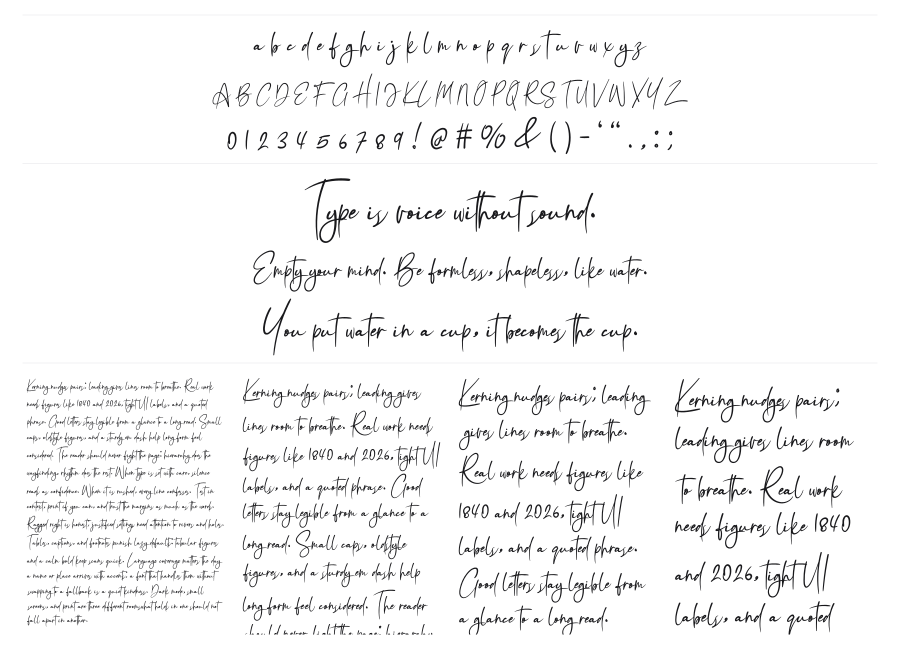 a b c d e f g h i j k l m n o p q r s t u v w x y z
A B C D E F G H I J K L M N O P Q R S T U V W X Y Z
0 1 2 3 4 5 6 7 8 9 ! @ # % & ( ) - ‘ “ . , : ;
Type is voice without sound.
Empty your mind. Be formless, shapeless, like water.
You put water in a cup, it becomes the cup.
Kerning nudges pairs; leading gives lines room to breathe. Real work
needs figures like 1840 and 2026, tight UI labels, and a quoted
phrase. Good letters stay legible from a glance to a long read. Small
caps, oldstyle figures, and a sturdy em dash help long form feel
considered. The reader should never fight the page; hierarchy does the
wayfinding, rhythm does the rest. When type is set with care, silence
reads as confidence. When it is rushed, every line confesses. Test in
context, print if you can, and trust the margins as much as the word.
Ragged right is honest; justified setting needs attention to rivers and holes.
Tables, captions, and footnotes punish lazy defaults; tabular figures
and a calm bold keep scans quick. Language coverage matters the day
a name or place arrives with accents; a font that handles them without
swapping to a fallback is a quiet kindness. Dark mode, small
screens, and print are three different rooms; what holds in one should not
fall apart in another.
Kerning nudges pairs; leading gives
lines room to breathe. Real work needs
figures like 1840 and 2026, tight UI
labels, and a quoted phrase. Good
letters stay legible from a glance to a
long read. Small caps, oldstyle
figures, and a sturdy em dash help
long form feel considered. The reader
should never fight the page; hierarchy
Kerning nudges pairs; leading
gives lines room to breathe.
Real work needs figures like
1840 and 2026, tight UI
labels, and a quoted phrase.
Good letters stay legible from
a glance to a long read.
Kerning nudges pairs;
leading gives lines room
to breathe. Real work
needs figures like 1840
and 2026, tight UI
labels, and a quoted